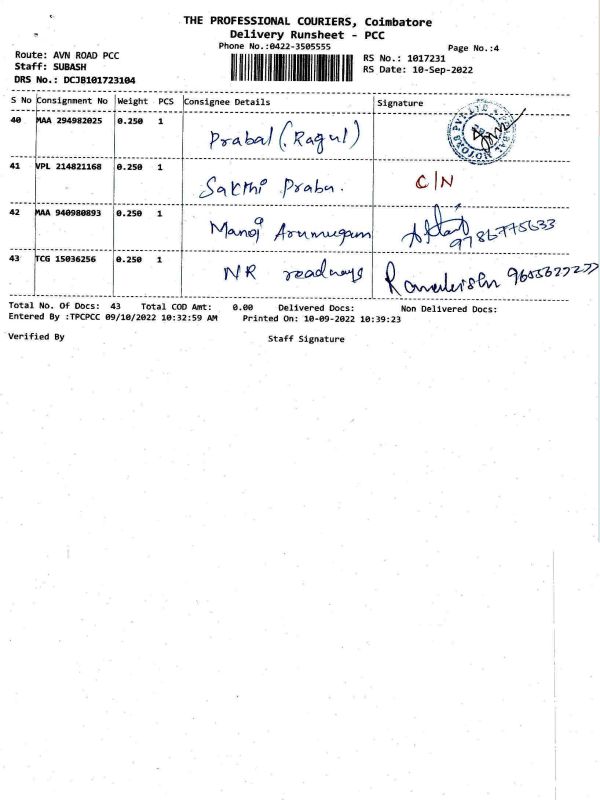 THE PROFESSIONAL COURIERS, Coimbatore
Delivery Runsheet - PCC
Phone No.:0422-3505555
Page No.:4
Route: AVN ROAD PCC
RS No.: 1017231
Staff: SUBASH
RS Date: 10-Sep-2022
DRS No.: DCJB101723104
S No Consignment No Weight PCS Consignee Details Signature
40 MAA 294982025 0.250 1 Prabal (Ragul)
41 VPL 214821168 0.250 1 Sakthi Prabu. C/N
42 MAA 940980893 0.250 1 Manoj Arumugam
43 TCG 15036256 0.250 1 NR roadways
Total No. Of Docs: 43 Total COD Amt: 0.00 Delivered Docs: Non Delivered Docs:
Entered By :TPCPCC 09/10/2022 10:32:59 AM Printed On: 10-09-2022 10:39:23
Verified By Staff Signature